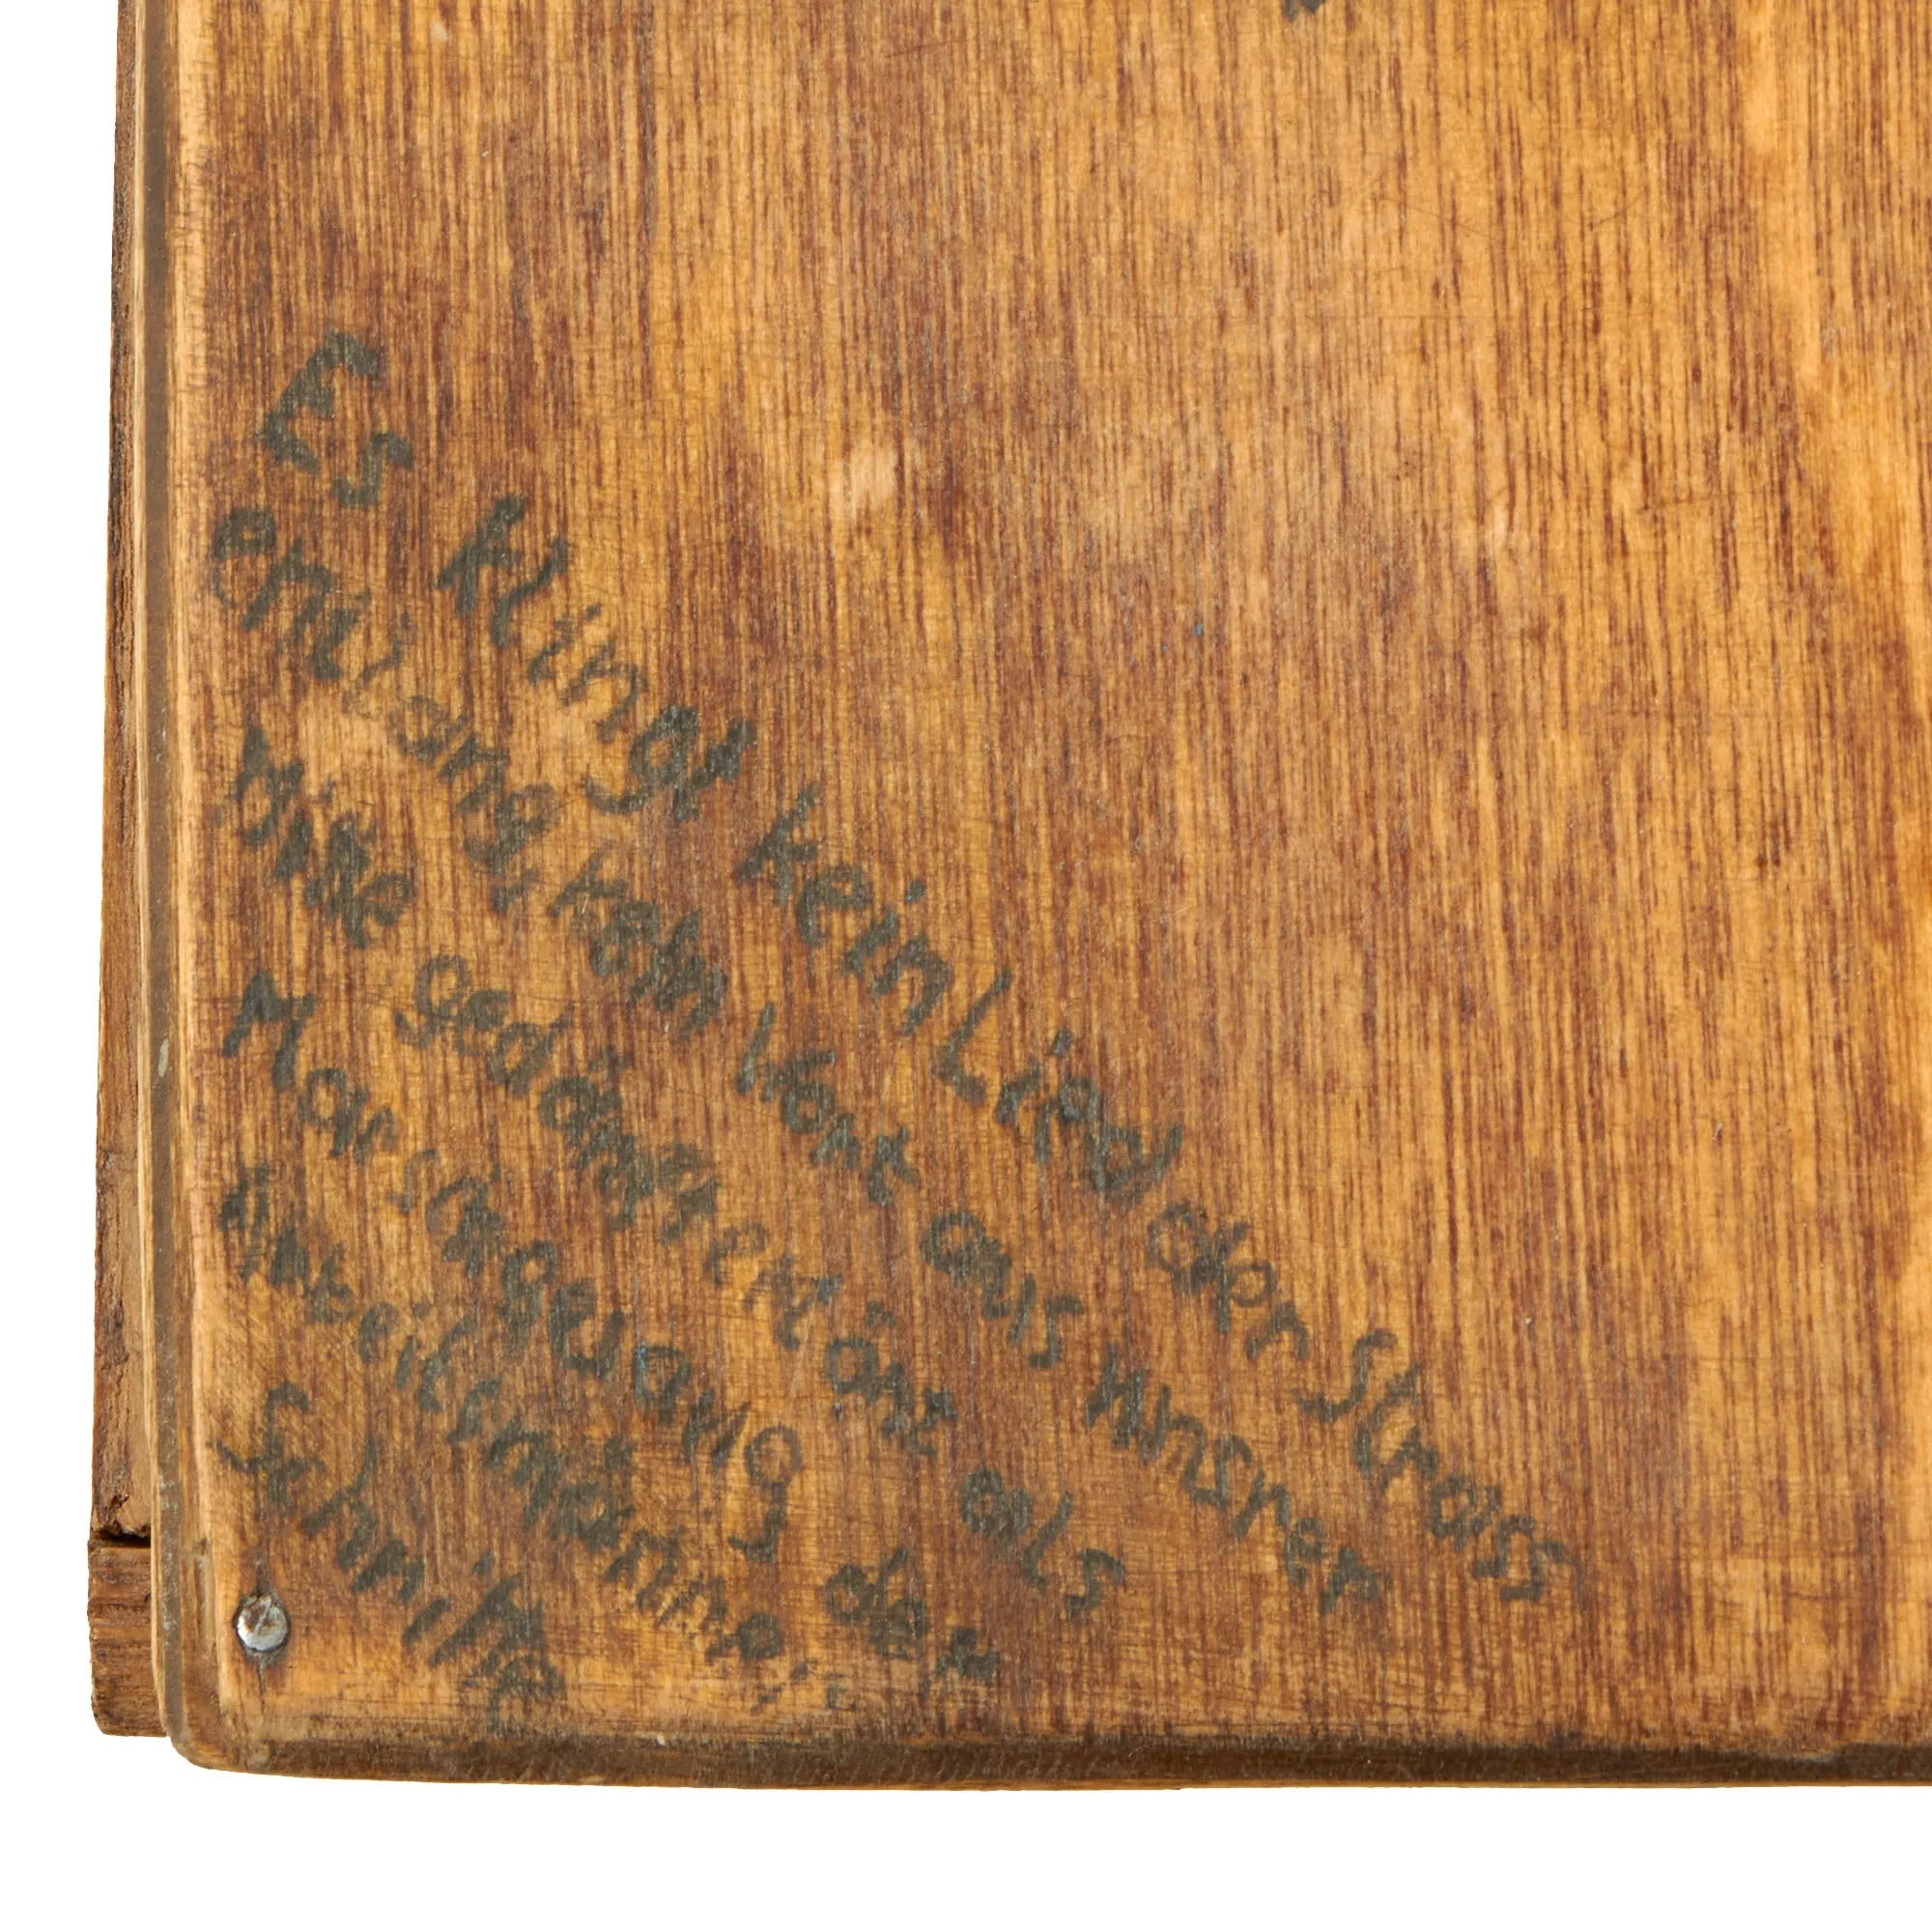 Es klingt kein Lied der Strass
entlang, kein Wort aus unsrer
Mitte gedämpft tönt als
Marschgesang der
Arbeitsmänner
Schritte